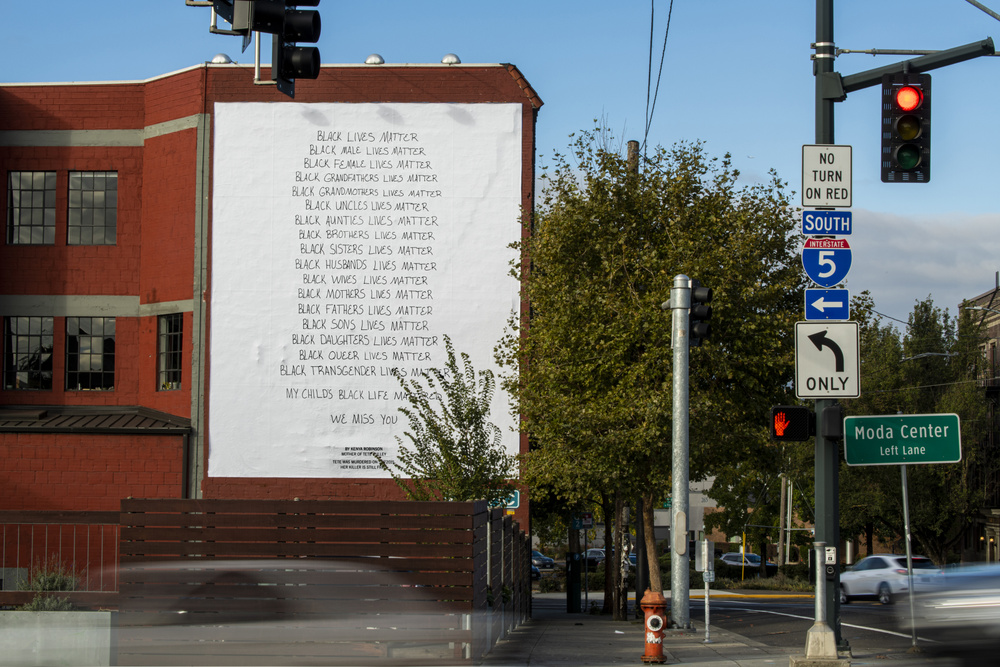 BLACK LIVES MATTER
BLACK MALE LIVES MATTER
BLACK FEMALE LIVES MATTER
BLACK GRANDFATHERS LIVES MATTER
BLACK GRANDMOTHERS LIVES MATTER
BLACK UNCLES LIVES MATTER
BLACK AUNTIES LIVES MATTER
BLACK BROTHERS LIVES MATTER
BLACK SISTERS LIVES MATTER
BLACK HUSBANDS LIVES MATTER
BLACK WIVES LIVES MATTER
BLACK MOTHERS LIVES MATTER
BLACK FATHERS LIVES MATTER
BLACK SONS LIVES MATTER
BLACK DAUGHTERS LIVES MATTER
BLACK QUEER LIVES MATTER
BLACK TRANSGENDER LIVES MATTER
MY CHILD'S BLACK LIFE
WE MISS YOU
BY KENYA ROBINSON
MOTHER OF TETE
TETE WAS MURDERED ON
HER KILLER IS STILL
NO
TURN
ON RED
SOUTH
INTERSTATE
5
ONLY
Moda Center
Left Lane